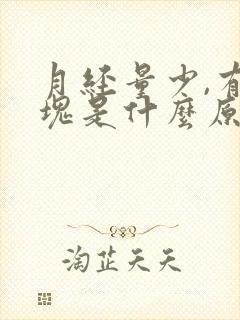 月经量少,有
塊是什麼原
淘芷天天